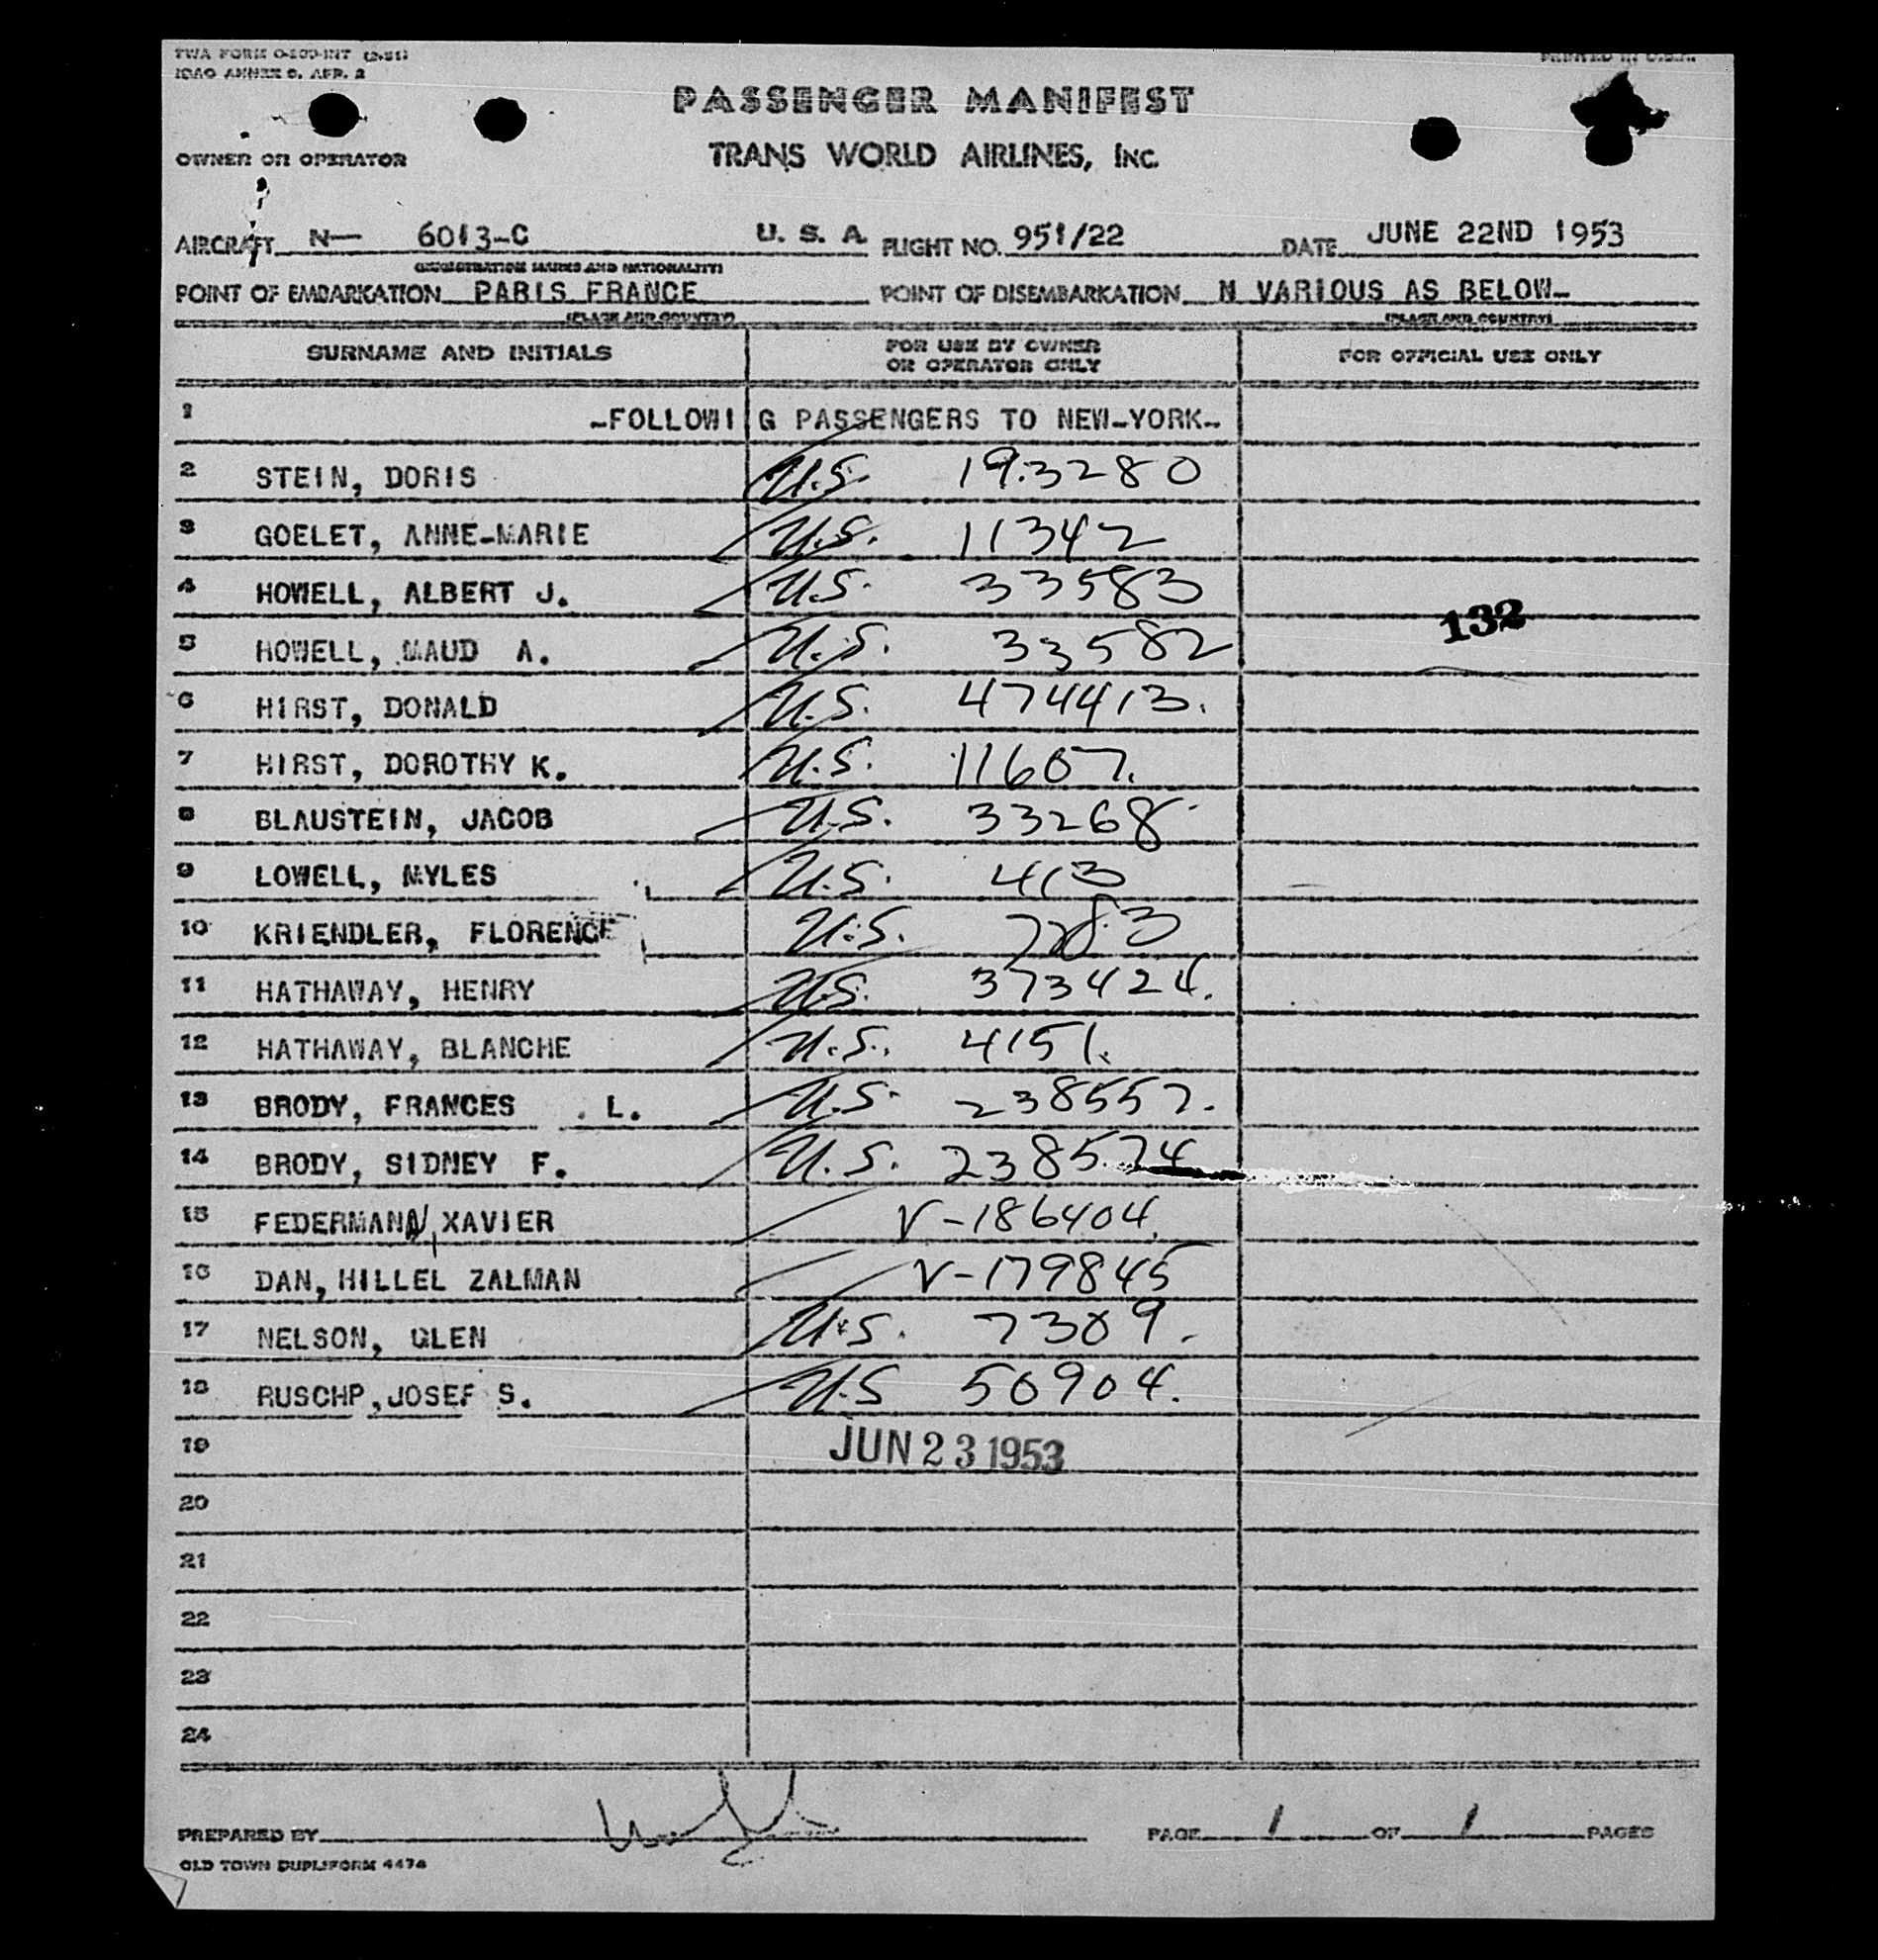 TWA FORM O-100-INT (2-51)
ICAO ANNEX 9, APP. 2
PRINTED IN U.S.A.
PASSENGER MANIFEST
OWNER OR OPERATOR TRANS WORLD AIRLINES, INC.
AIRCRAFT N— 6013-C U. S. A. FLIGHT NO. 951/22 DATE JUNE 22ND 1953
(REGISTRATION MARKS AND NATIONALITY)
POINT OF EMBARKATION PARIS FRANCE POINT OF DISEMBARKATION N VARIOUS AS BELOW-
(PLACE AND COUNTRY) (PLACE AND COUNTRY)
SURNAME AND INITIALS FOR USE BY OWNER OR OPERATOR ONLY FOR OFFICIAL USE ONLY
1 -FOLLOWI G PASSENGERS TO NEW-YORK-
2 STEIN, DORIS U.S. 193280
3 GOELET, ANNE-MARIE U.S. 11342
4 HOWELL, ALBERT J. U.S. 33583
132
5 HOWELL, MAUD A. U.S. 33582
6 HIRST, DONALD U.S. 474413.
7 HIRST, DOROTHY K. U.S. 11607.
8 BLAUSTEIN, JACOB U.S. 33268
9 LOWELL, MYLES U.S. 413
10 KRIENDLER, FLORENCE U.S.
11 HATHAWAY, HENRY U.S. 373424.
12 HATHAWAY, BLANCHE U.S. 4151.
13 BRODY, FRANCES L. U.S. 238557.
14 BRODY, SIDNEY F. U.S. 238574
15 FEDERMANN, XAVIER V-186404.
16 DAN, HILLEL ZALMAN V-179845
17 NELSON, GLEN U.S. 7309.
18 RUSCHP, JOSEF S. U.S 50904.
19 JUN 23 1953
20
21
22
23
24
PREPARED BY PAGE 1 OF 1 PAGES
OLD TOWN DUPLIFORM 4474